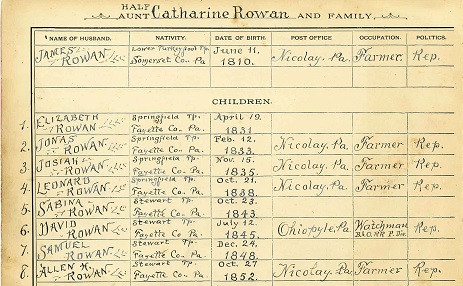 HALF
AUNT Catharine Rowan AND FAMILY,
NAME OF HUSBAND. NATIVITY. DATE OF BIRTH. POST OFFICE OCCUPATION. POLITICS.
JAMES Lower Turkeyfoot Tp. June 11.
ROWAN Somerset Co. Pa 1810. Nicolay. Pa. Farmer. Rep.
CHILDREN.
1. ELIZABETH Springfield Tp. April 19.
ROWAN Fayette Co. Pa. 1831
2. JONAS Springfield Tp. Feb. 12.
ROWAN Fayette Co. Pa. 1833. Nicolay. Pa Farmer Rep.
3. JOSIAH Springfield Tp. Nov. 15.
ROWAN Fayette Co. Pa. 1835. Nicolay. Pa. Farmer Rep.
4. LEONARD Springfield Tp. Oct. 21.
ROWAN Fayette Co. Pa. 1838. Nicolay. Pa. Farmer Rep.
5. SABINA Stewart Tp. Oct. 23.
ROWAN Fayette Co. Pa. 1843.
6. DAVID Stewart Tp. July 12.
ROWAN Fayette Co. Pa. 1845. Ohiopyle. Pa. Watchman Rep.
B.&O. R.R. P. Div.
7. SAMUEL Stewart Tp. Dec. 24.
ROWAN Fayette Co. Pa. 1848.
8. ALLEN H. Stewart Tp. Oct. 27
ROWAN Fayette Co. Pa. 1852. Nicolay. Pa. Farmer Rep.